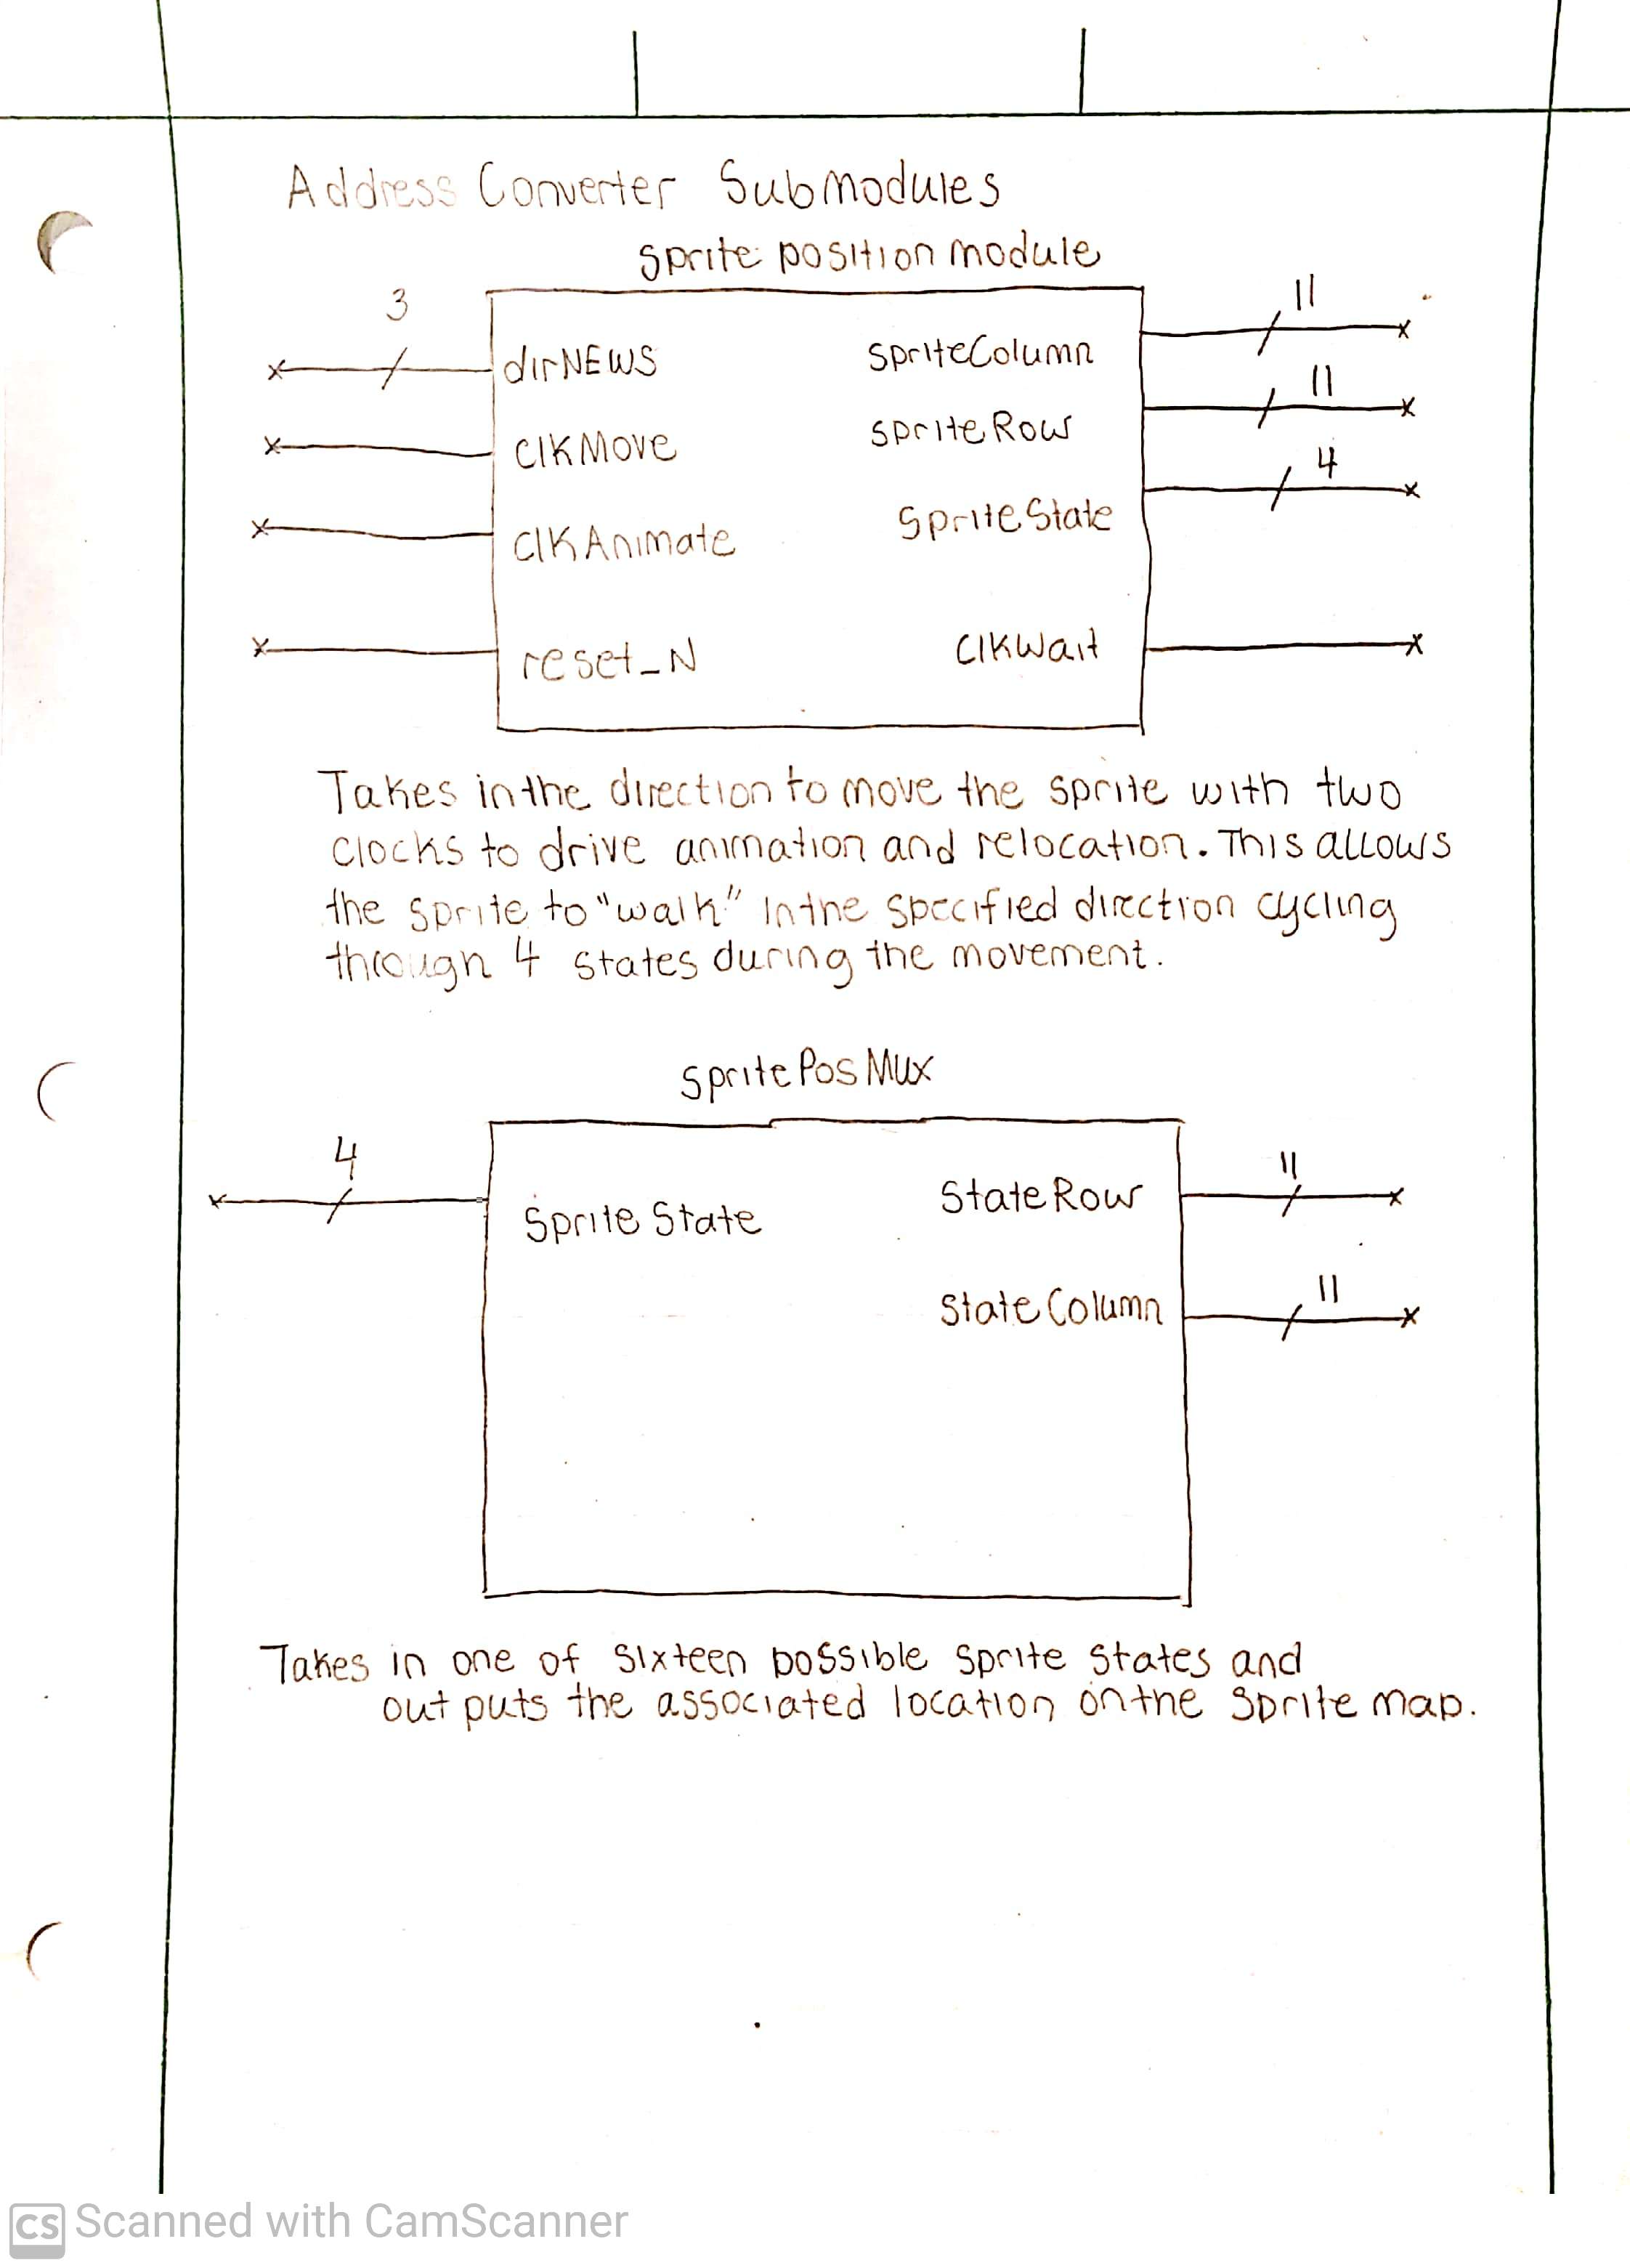 Address Converter Submodules
Sprite position module
3
11
dirNEWS
SpriteColumn
11
clkMove
SpriteRow
4
clkAnimate
SpriteState
reset_N
clkWait
Takes in the direction to move the sprite with two
clocks to drive animation and relocation. This allows
the sprite to "walk" in the specified direction cycling
through 4 states during the movement.
SpritePosMux
4
11
Sprite State
StateRow
11
StateColumn
Takes in one of sixteen possible sprite states and
outputs the associated location on the sprite map.
CS Scanned with CamScanner